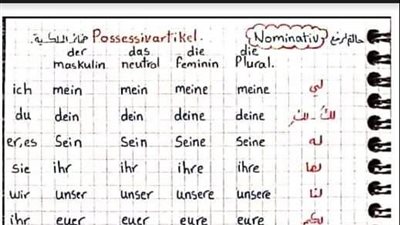 ضمائر الملكية. Possessivartikel. Nominativ حالة الرفع
der das die die
maskulin neutral feminin Plural.
ich mein mein meine meine لي
du dein dein deine deine لكَ - لكِ
er,es Sein Sein Seine Seine له
sie ihr ihr ihre ihre لها
wir unser unser unsere unsere لنا
ihr euer euer eure eure لكم